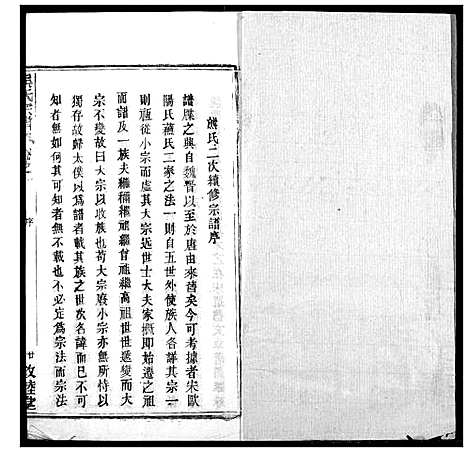 熊氏二次續修宗譜序
譜牒之興自魏晉以至於唐由來舊矣今可考者宋歐
陽氏蘇氏二家之法一則自五世外使族人各詳其宗一
則廬從小宗而虛其大宗近世士大夫家概即始遷之祖
而譜及一族夫繼禰繼祖繼曾祖繼高祖世世遞變而大
宗不變故曰大宗以收族也苟大宗廢小宗亦無所恃以
獨存故歸太僕以為譜者載其族之世次名諱而已不可
知者無如何其可知者無不載也不必定為宗法而宗法
序
敦睦堂